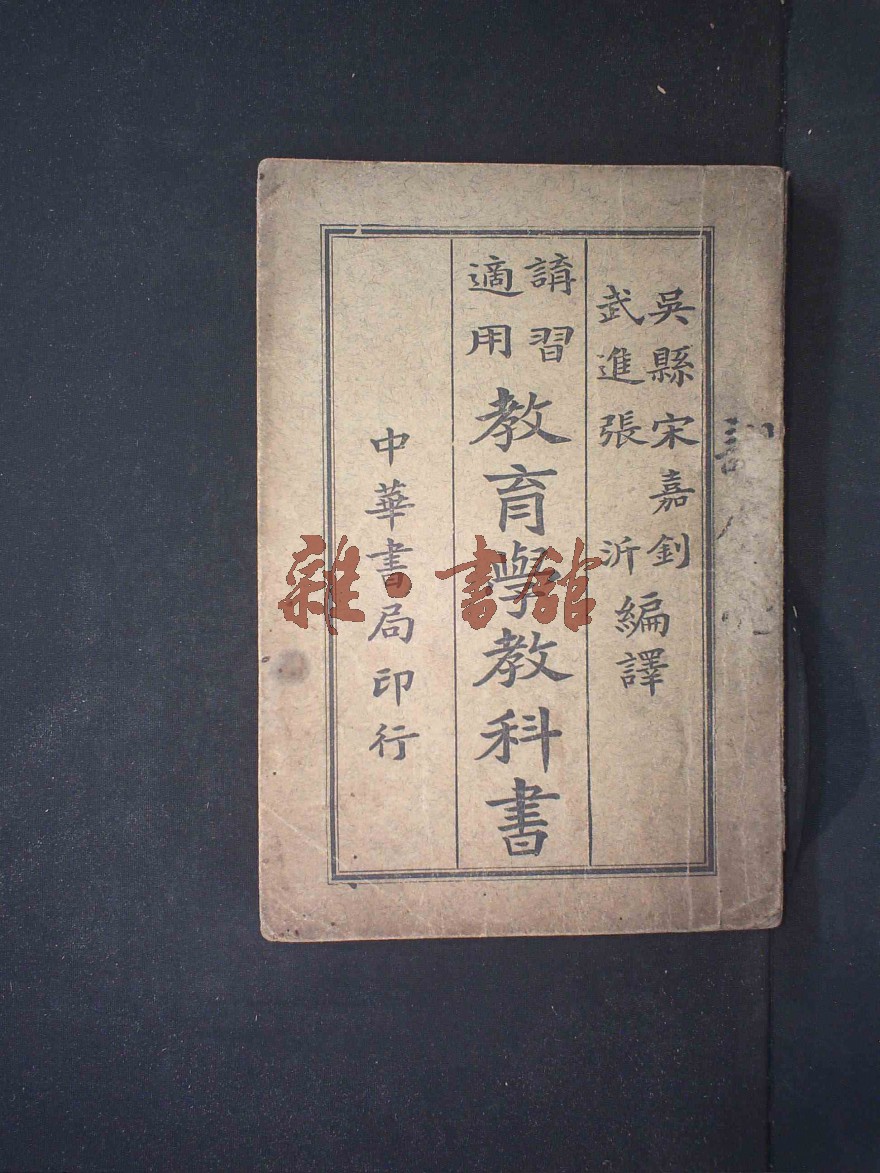 吳縣宋嘉釗
武進張沂
編譯
講習
適用
教育學教科書
中華書局印行
雜·書館